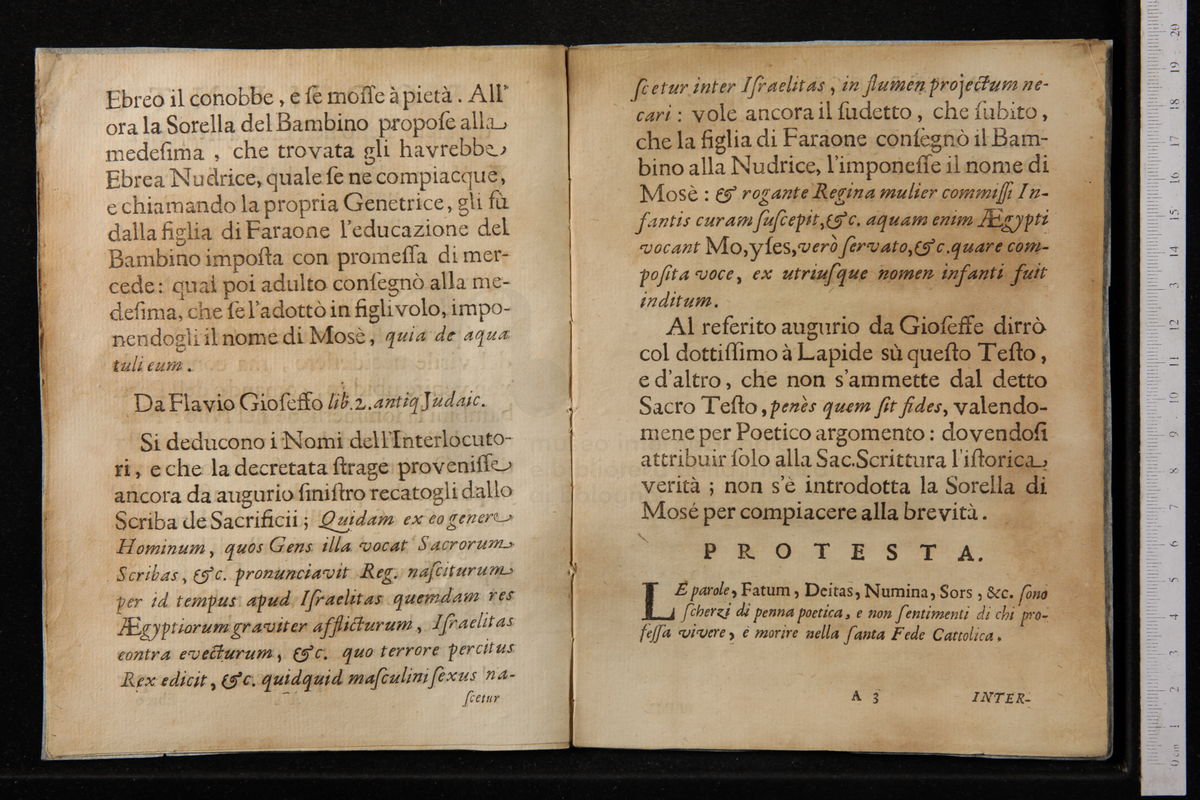 Ebreo il conobbe, e ſe moſſe à pietà. All'
ora la Sorella del Bambino propoſe alla
medeſima, che trovata gli havrebbe
Ebrea Nudrice, quale ſe ne compiacque,
e chiamando la propria Genetrice, gli fù
dalla figlia di Faraone l'educazione del
Bambino impoſta con promeſſa di mer-
cede: qual poi adulto conſegnò alla me-
deſima, che ſe l'adottò in figlivolo, impo-
nendogli il nome di Mosè, quia de aqua
tuli eum.
Da Flavio Gioſeffo lib.2.antiq Judaic.
Si deducono i Nomi dell'Interlocuto-
ri, e che la decretata ſtrage proveniſſe
ancora da augurio ſiniſtro recatogli dallo
Scriba de Sacrificii; Quidam ex eo genere
Hominum, quos Gens illa vocat Sacrorum
Scribas, &c. pronunciavit Reg. naſciturum
per id tempus apud Iſraelitas quemdam res
Ægyptiorum graviter afflicturum, Iſraelitas
contra evecturum, &c. quo terrore percitus
Rex edicit, &c. quidquid maſculini ſexus na-
ſcetur
ſcetur inter Iſraelitas, in flumen projectum ne-
cari: vole ancora il ſudetto, che ſubito,
che la figlia di Faraone conſegnò il Bam-
bino alla Nudrice, l'imponeſſe il nome di
Mosè: & rogante Regina mulier commiſſi In-
fantis curam ſuſcepit,&c. aquam enim Ægypti
vocant Mo,yſes,verò ſervato,&c.quare com-
poſita voce, ex utriuſque nomen infanti fuit
inditum.
Al referito augurio da Gioſeffe dirrò
col dottiſſimo à Lapide sù queſto Teſto,
e d'altro, che non s'ammette dal detto
Sacro Teſto, penès quem ſit fides, valendo-
mene per Poetico argomento: dovendoſi
attribuir ſolo alla Sac.Scrittura l'iſtorica
verità; non s'è introdotta la Sorella di
Mosé per compiacere alla brevità.
PROTESTA.
LE parole, Fatum, Deitas, Numina, Sors, &c. ſono
ſcherzi di penna poetica, e non ſentimenti di chi pro-
feſſa vivere, e morire nella ſanta Fede Cattolica.
A 3 INTER-